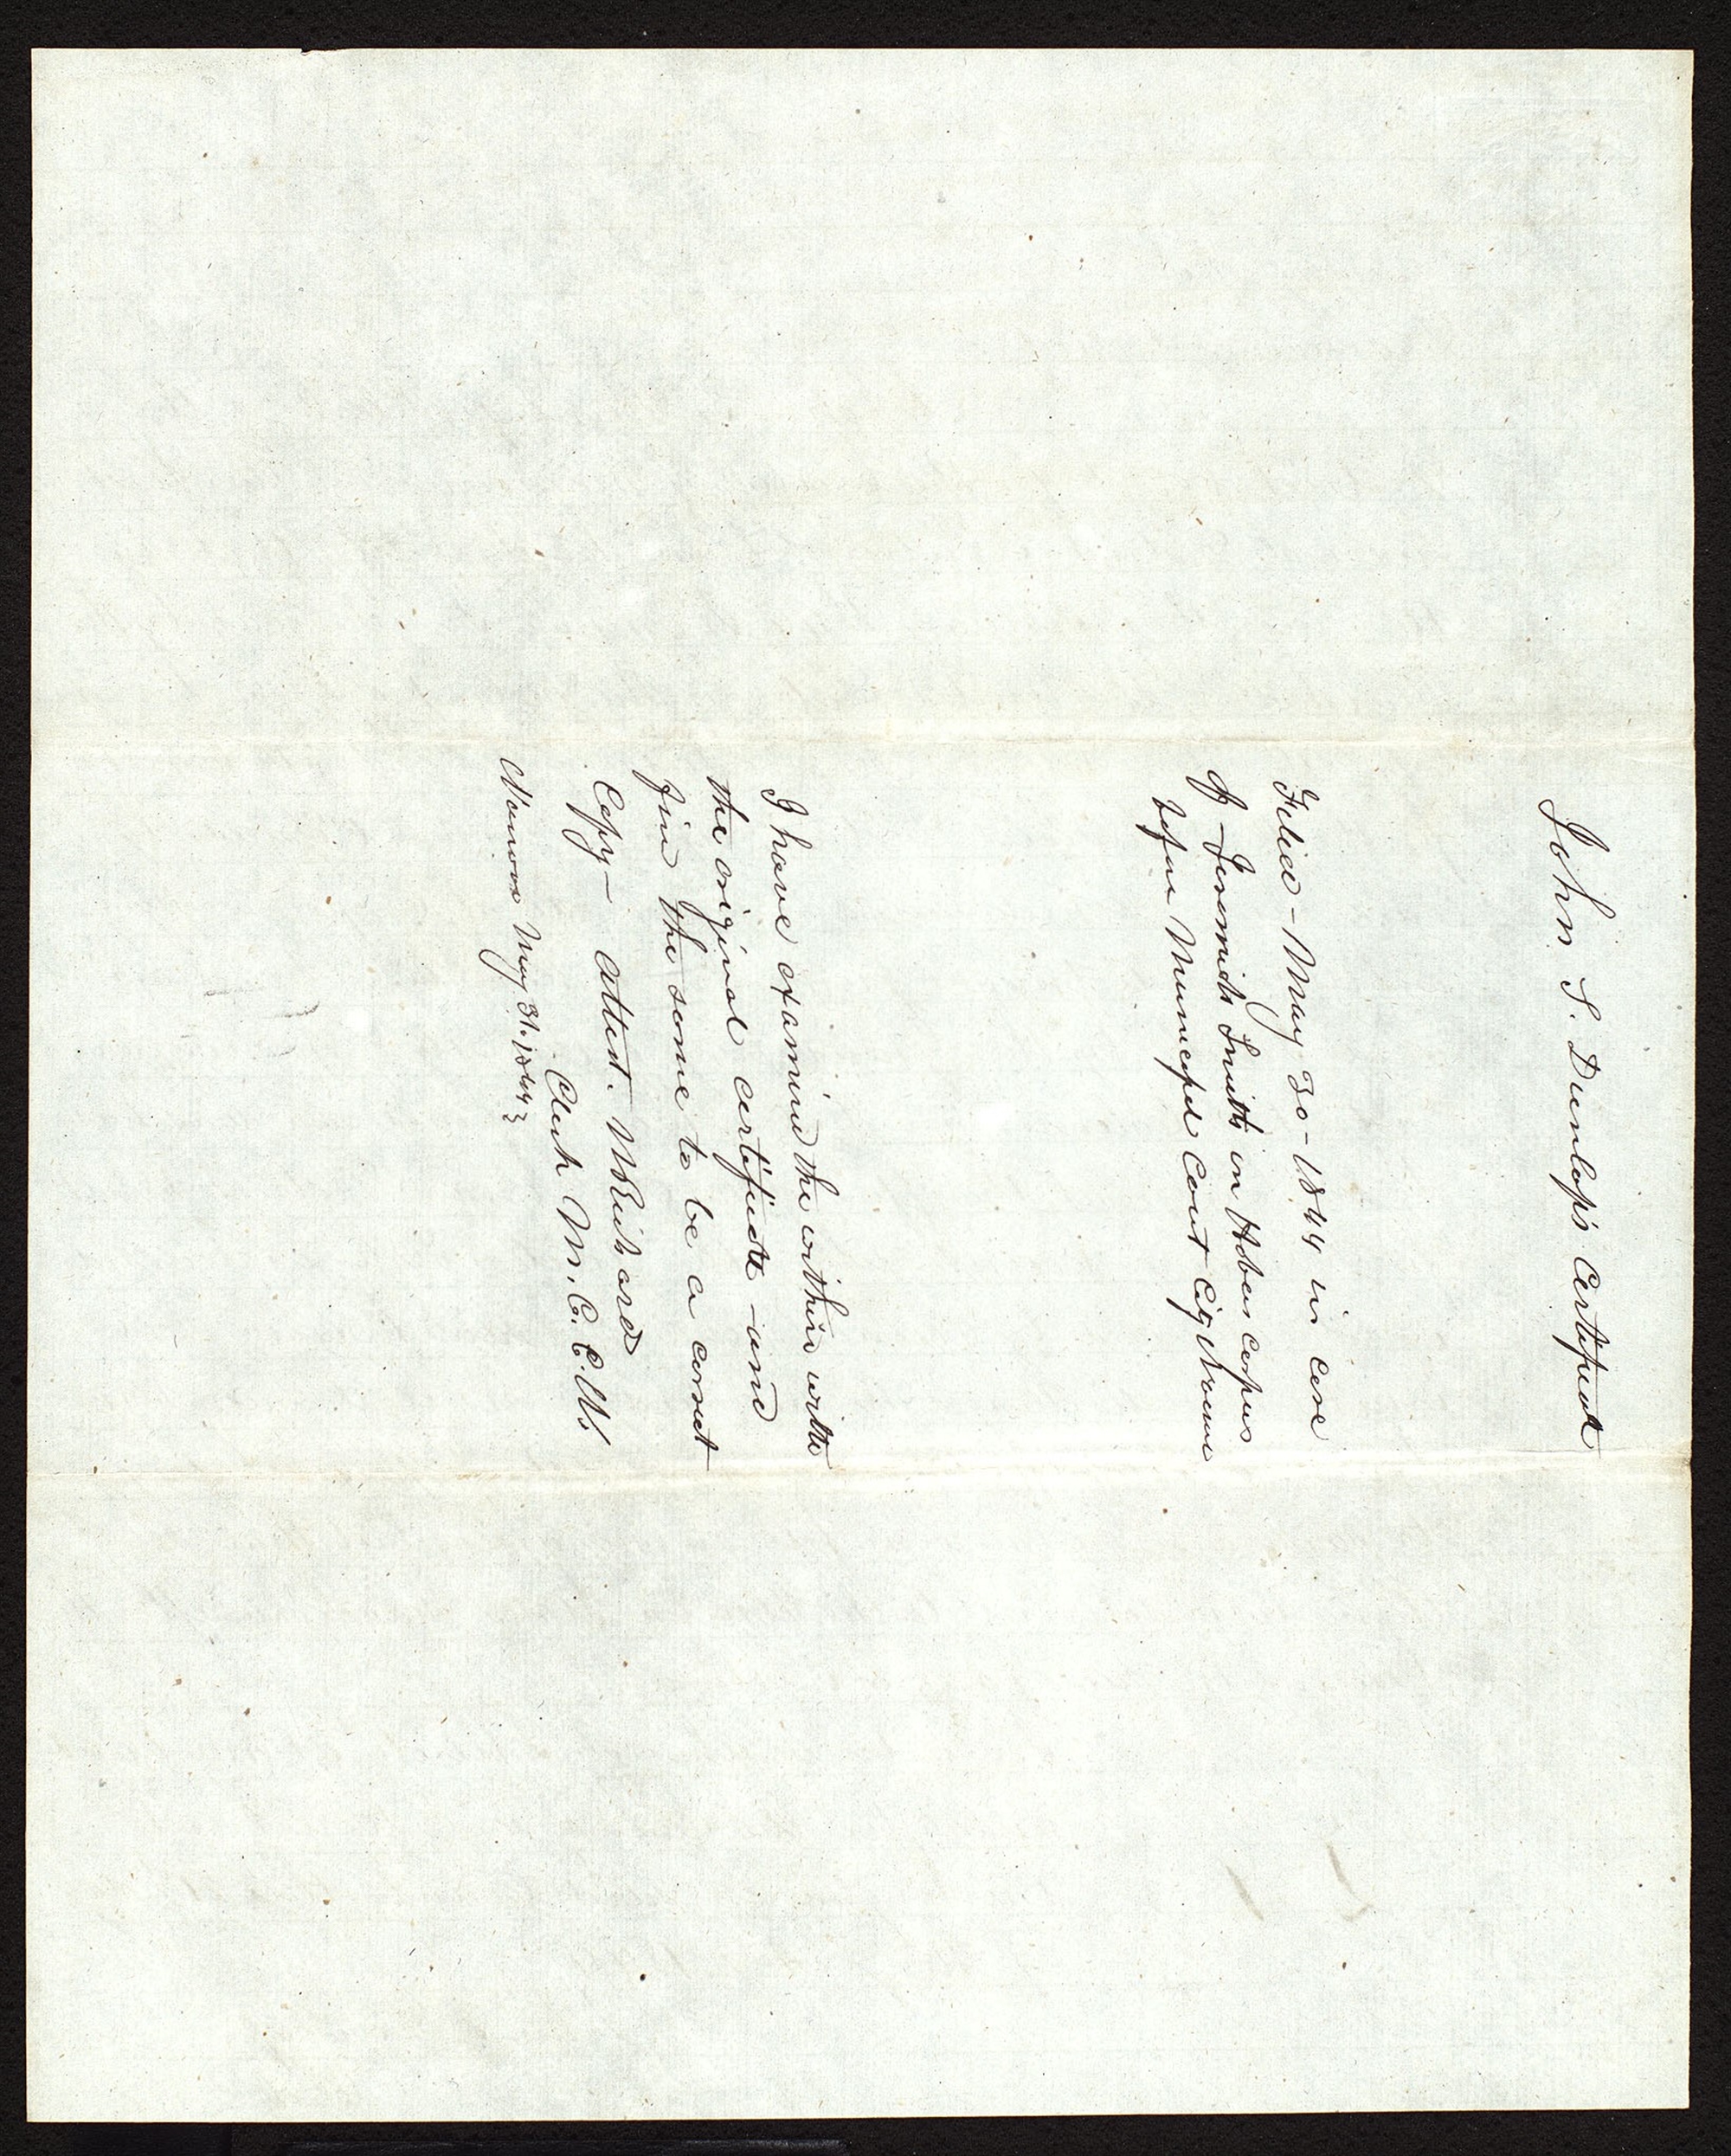 John S. Dunlap's Certificate
Filed - May 30 - 1844 in case
of Jeremiah Smith in Habeus Corpus
before Municipal Court City Nauvoo
I have examined the within with
the original certificate - and
find the same to be a correct
Copy - attest. W Richards
Clerk M. C. C. N.
Nauvoo May 31. 1844 }